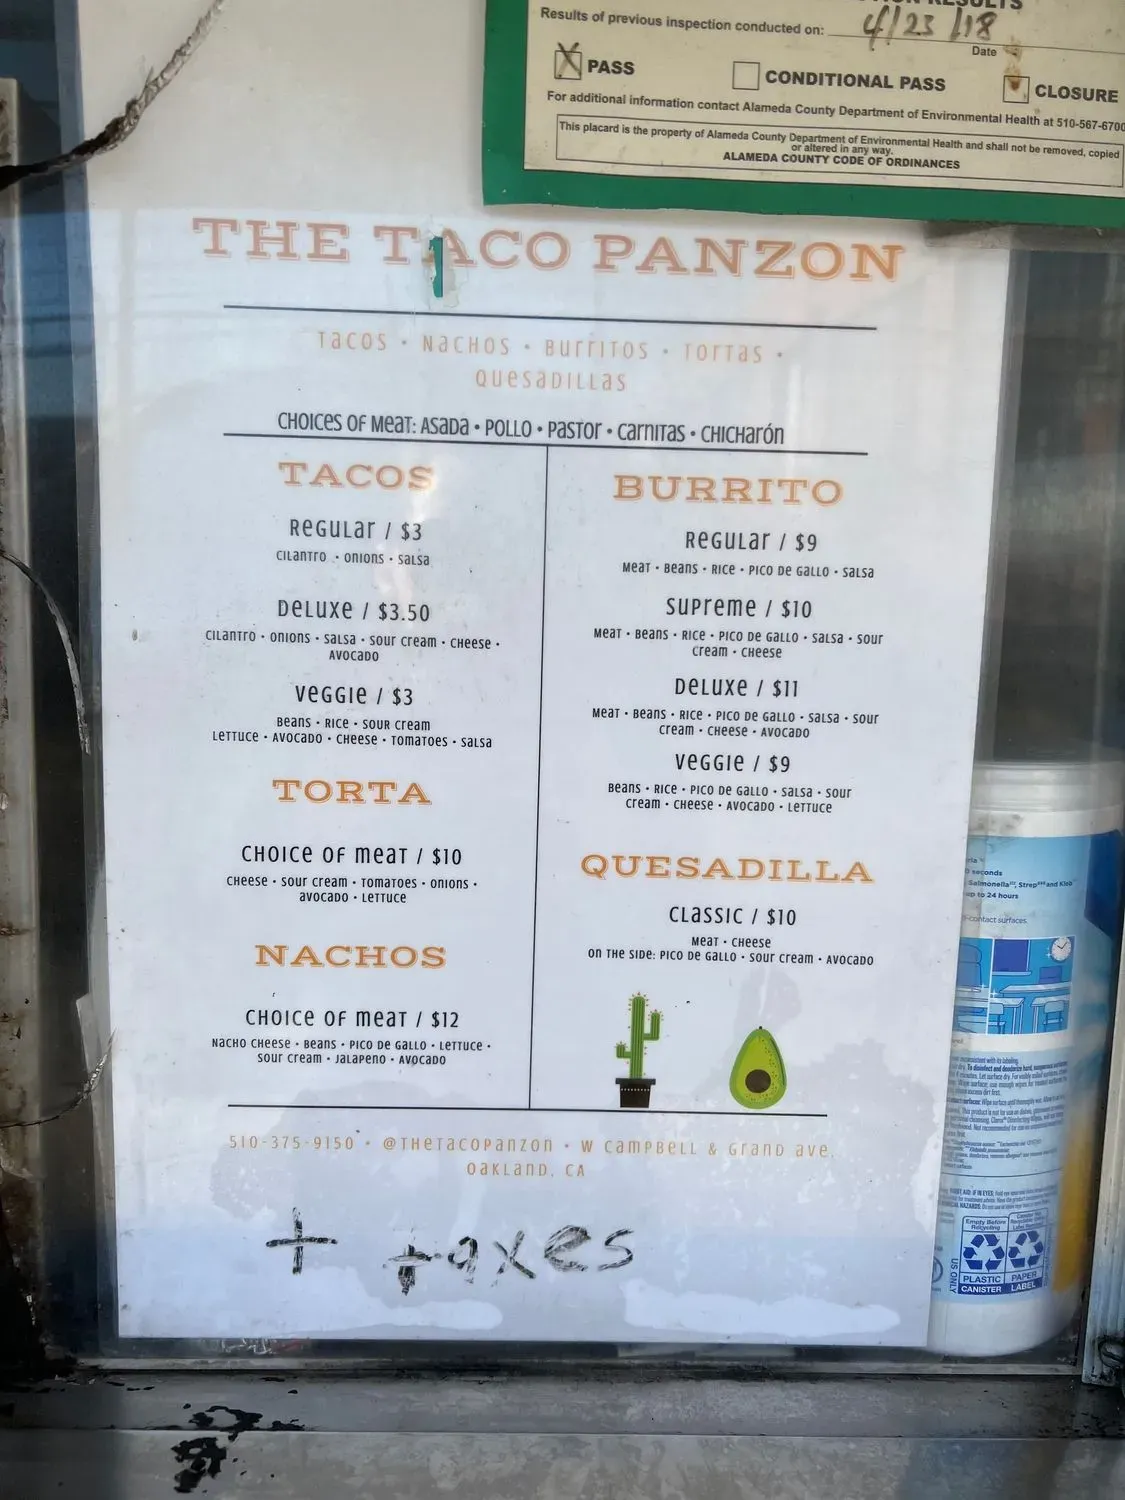 Results of previous inspection conducted on: 4/23/18
Date
X PASS
CONDITIONAL PASS
CLOSURE
For additional information contact Alameda County Department of Environmental Health at 510-567-6700
This placard is the property of Alameda County Department of Environmental Health and shall not be removed, copied
or altered in any way.
ALAMEDA COUNTY CODE OF ORDINANCES
THE TACO PANZON
TACOS • NACHOS • BURRITOS • TORTAS •
QUESADILLAS
CHOICES OF MEAT: ASADA • POLLO • PASTOR • CARNITAS • CHICHARÓN
TACOS
REGULAR / $3
CILANTRO • ONIONS • SALSA
DELUXE / $3.50
CILANTRO • ONIONS • SALSA • SOUR CREAM • CHEESE •
AVOCADO
VEGGIE / $3
BEANS • RICE • SOUR CREAM
LETTUCE • AVOCADO • CHEESE • TOMATOES • SALSA
TORTA
CHOICE OF MEAT / $10
CHEESE • SOUR CREAM • TOMATOES • ONIONS •
AVOCADO • LETTUCE
NACHOS
CHOICE OF MEAT / $12
NACHO CHEESE • BEANS • PICO DE GALLO • LETTUCE •
SOUR CREAM • JALAPENO • AVOCADO
BURRITO
REGULAR / $9
MEAT • BEANS • RICE • PICO DE GALLO • SALSA
SUPREME / $10
MEAT • BEANS • RICE • PICO DE GALLO • SALSA • SOUR
CREAM • CHEESE
DELUXE / $11
MEAT • BEANS • RICE • PICO DE GALLO • SALSA • SOUR
CREAM • CHEESE • AVOCADO
VEGGIE / $9
BEANS • RICE • PICO DE GALLO • SALSA • SOUR
CREAM • CHEESE • AVOCADO • LETTUCE
QUESADILLA
CLASSIC / $10
MEAT • CHEESE
ON THE SIDE: PICO DE GALLO • SOUR CREAM • AVOCADO
510-375-9150 • @THETACOPANZON • W CAMPBELL & GRAND AVE.
OAKLAND, CA
+ taxes
seconds
Salmonella, Strep and Kleb
up to 24 hours
contact surfaces.
Empty Before
Recycling
PLASTIC
CANISTER
PAPER
LABEL
US ONLY